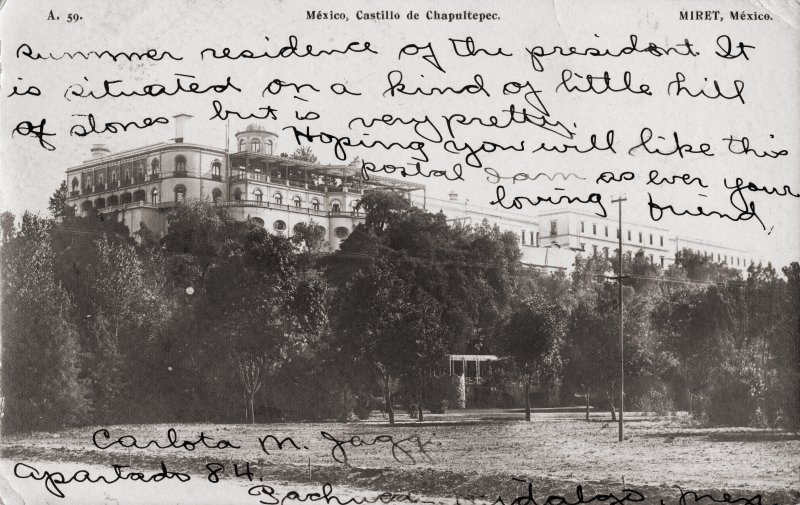 A. 59.
México, Castillo de Chapultepec.
MIRET, México.
summer residence of the president. It
is situated on a kind of little hill
of stones but is very pretty.
Hoping you will like this
postal I am as ever your
loving friend,
Carlota M. Jagg.
Apartado 84.
Pachuca, Hidalgo, Mex